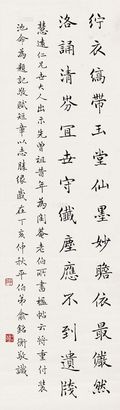 紵衣縞帶玉堂仙墨妙瞻依最儼然
洛誦清芬宜世守纖塵應不到遺牋
慧遠仁兄世大人出示先曾祖昔年為闇菴老伯所書楹帖云將重付裝
池命為題記敬賦短章以志勝緣歲在丁亥仲秋平伯弟俞銘衡敬識